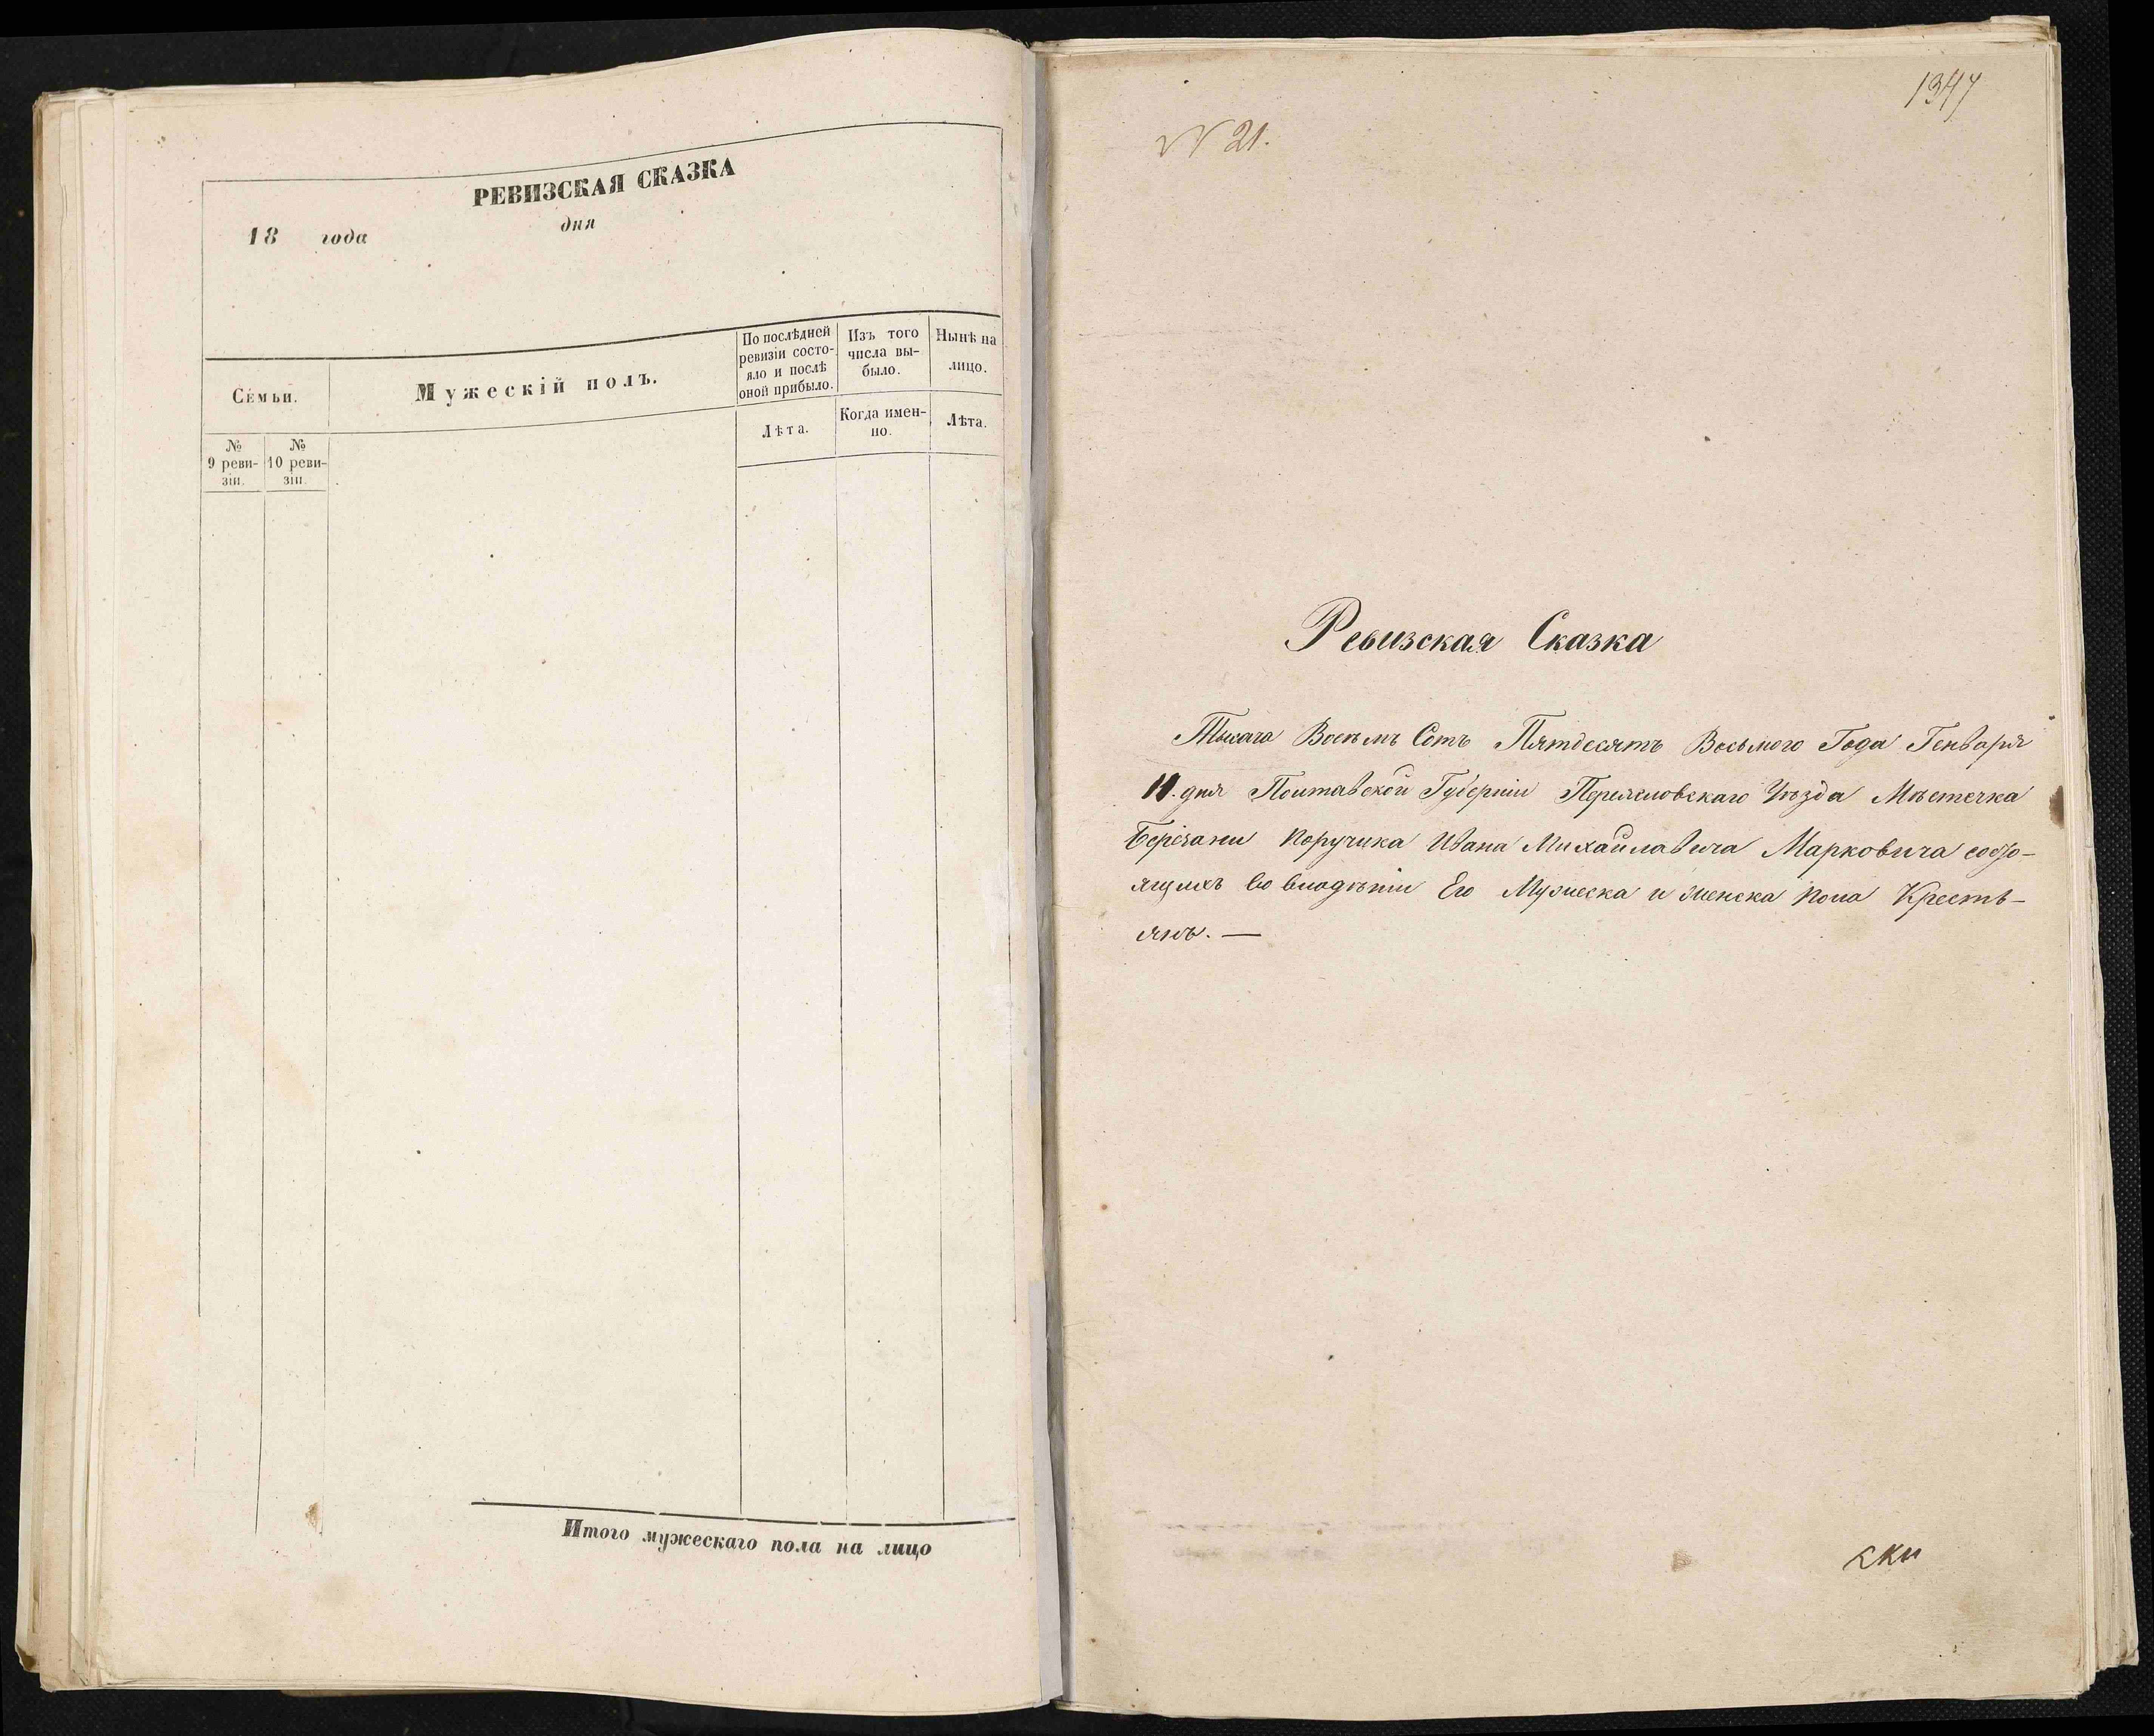 РЕВИЗСКАЯ СКАЗКА
18 года дня
Семьи.
Мужескій полъ.
По послѣдней
ревизіи состо-
яло и послѣ
оной прибыло.
Изъ того
числа вы-
было.
Нынѣ на
лицо.
Лѣта.
Когда имен-
но.
Лѣта.
№
9 реви-
зіи.
№
10 реви-
зіи.
Итого мужескаго пола на лицо
1347
N 21.
Ревизская Сказка
Тысяча Восемь Сотъ Пятдесятъ Восьмого Года Генваря
11. дня Полтавской Губерніи Переясловскаго Уѣзда Мѣстечка
Берізани Поручика Ивана Михайлавича Марковича состо-
ящихъ во владѣніи Его Мужеска и женска пола Крестъ-
янъ. —